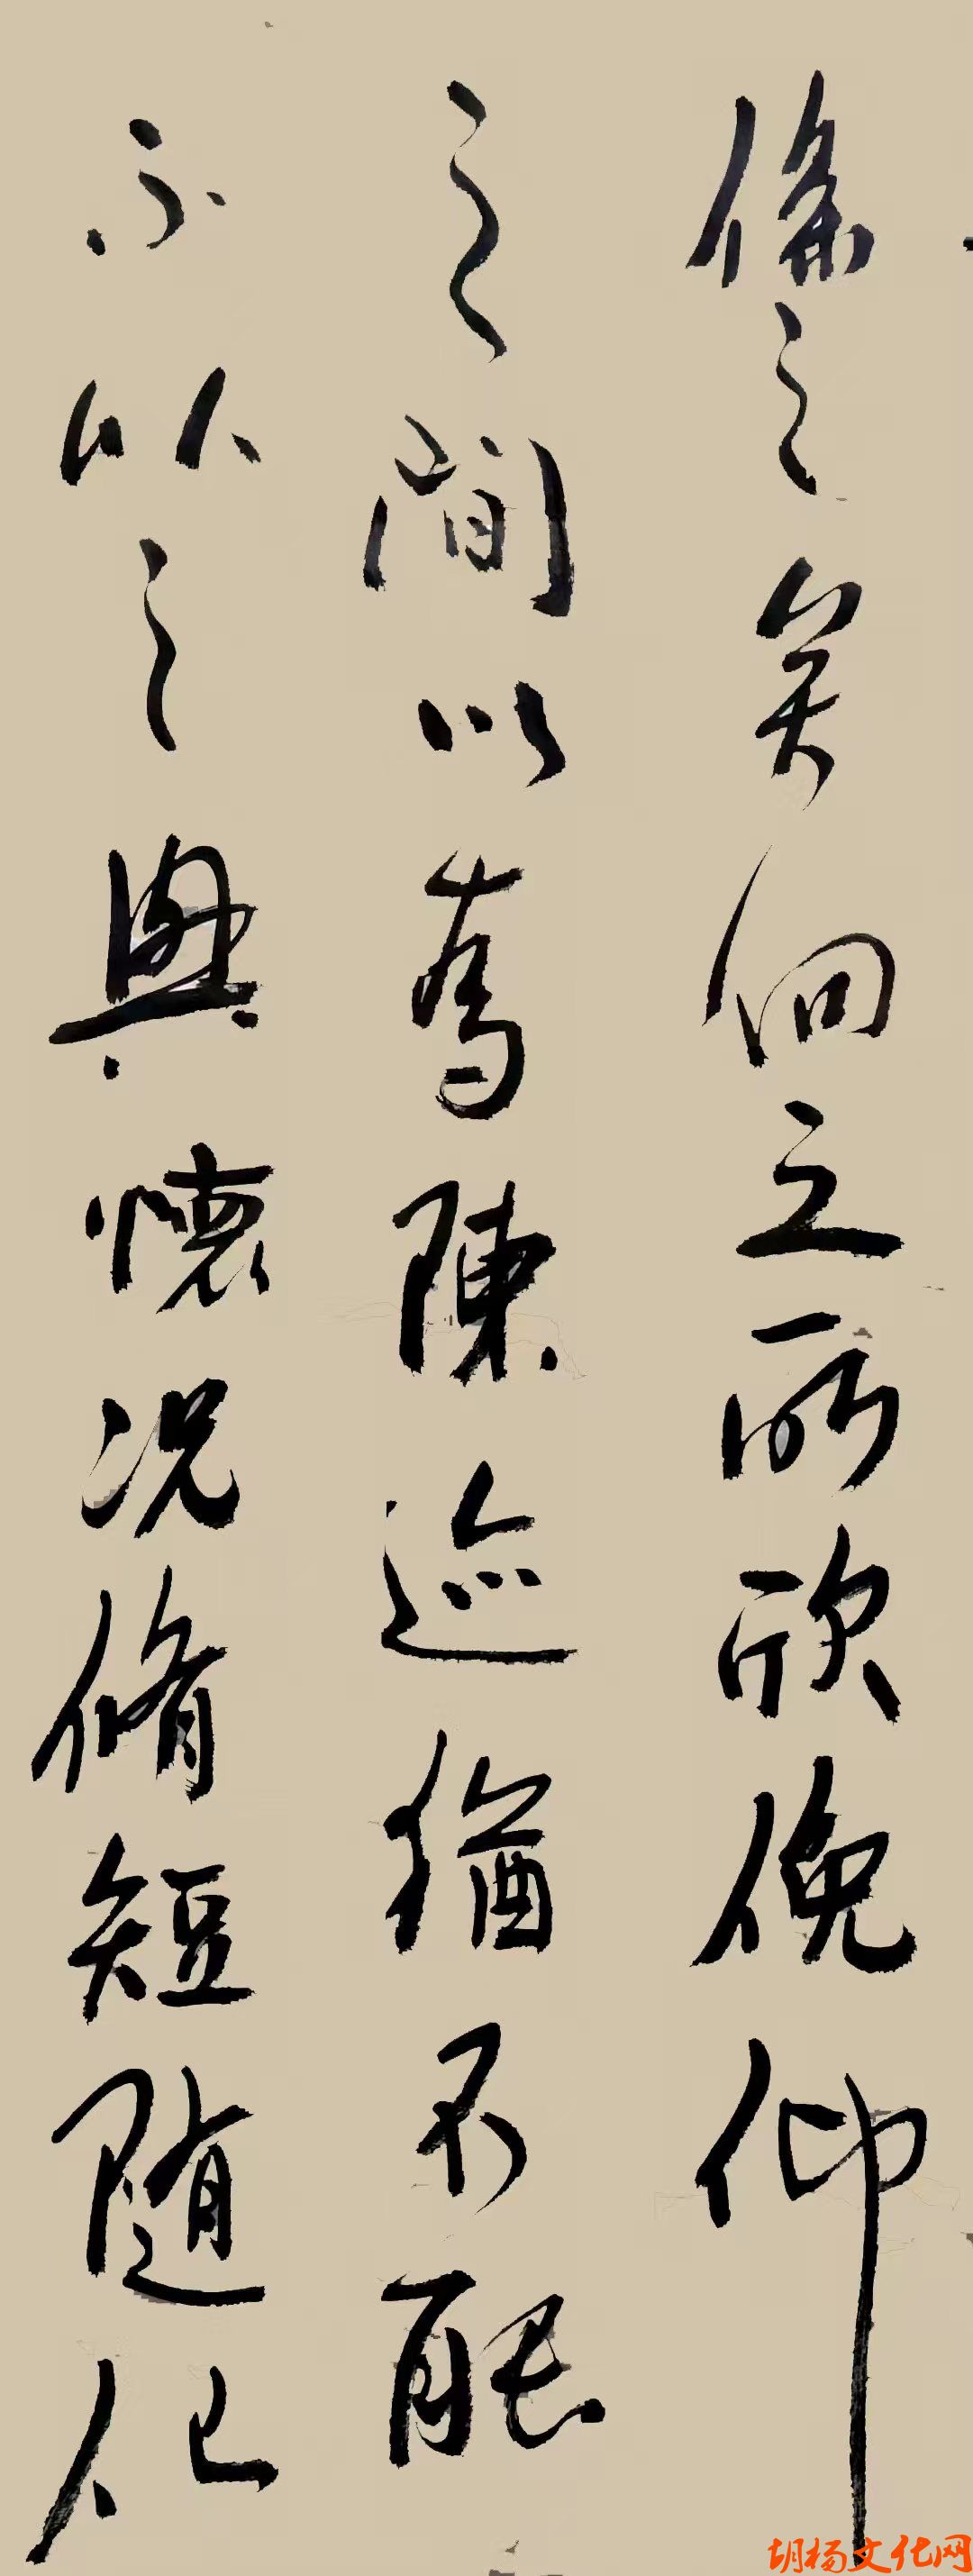 係之矣向之所欣俛仰
之間以為陳迹猶不能
不以之興懷况脩短随化
胡杨文化网